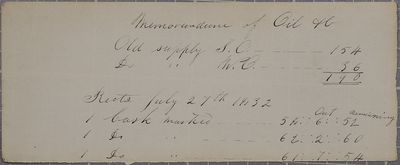 Memorandum of Oil &c
Old supply S.O. - - - - - 154
Do " W.O. - - - - - 36
190
Rects July 27th 1832
Out remaining
1 Cask marked - - - - 58 : 6 : 52
1 Do " - - - - 62 : 2 : 60
1 Do " - - - - 61 : 7 : 54